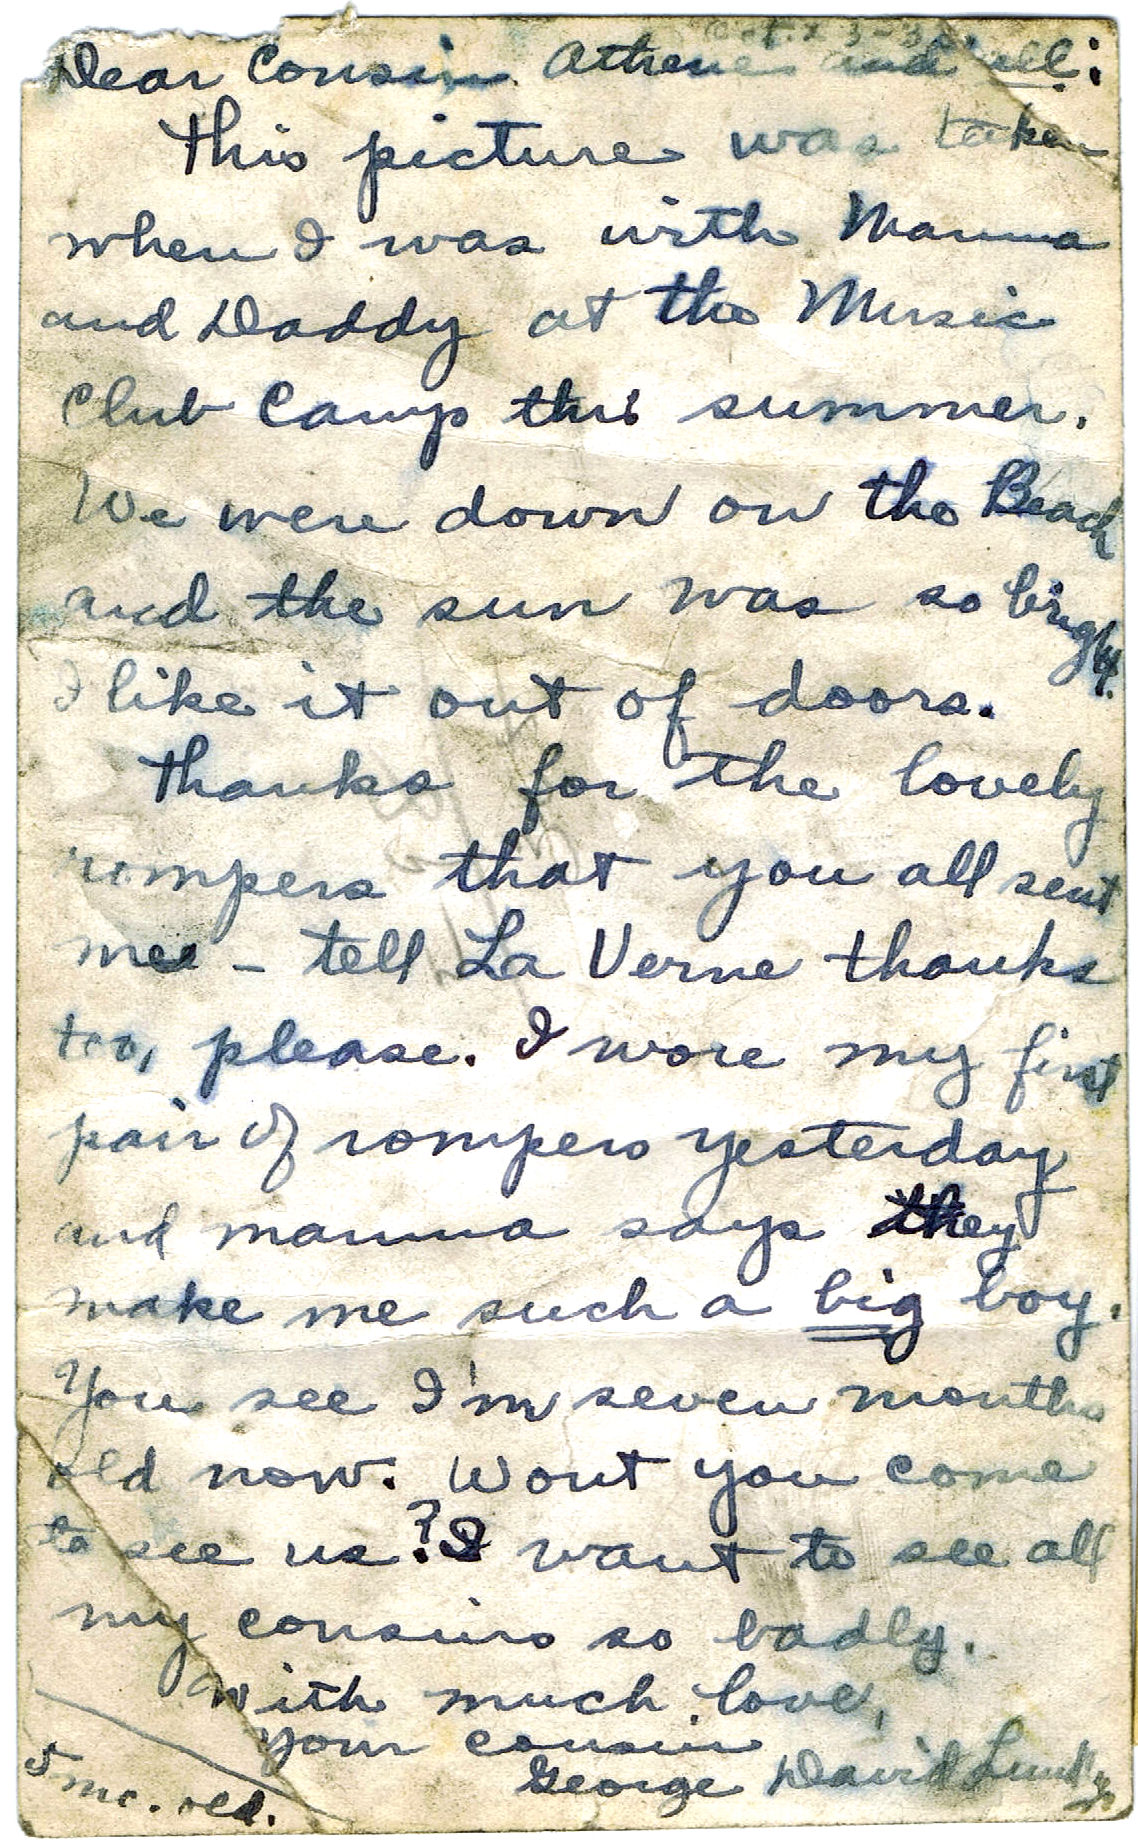 Oct. 23-3
Dear Cousin Athene and all:
This picture was taken
when I was with Mamma
and Daddy at the Music
Club Camp this summer.
We were down on the Beach
and the sun was so bright.
I like it out of doors.
Thanks for the lovely
rompers that you all sent
me – tell La Verne thanks
too, please. I wore my first
pair of rompers yesterday
and mamma says they
make me such a big boy.
You see I'm seven months
old now. Wont you come
to see us? I want to see all
my cousins so badly.
With much love,
Your cousin
George David
5 mo. old.